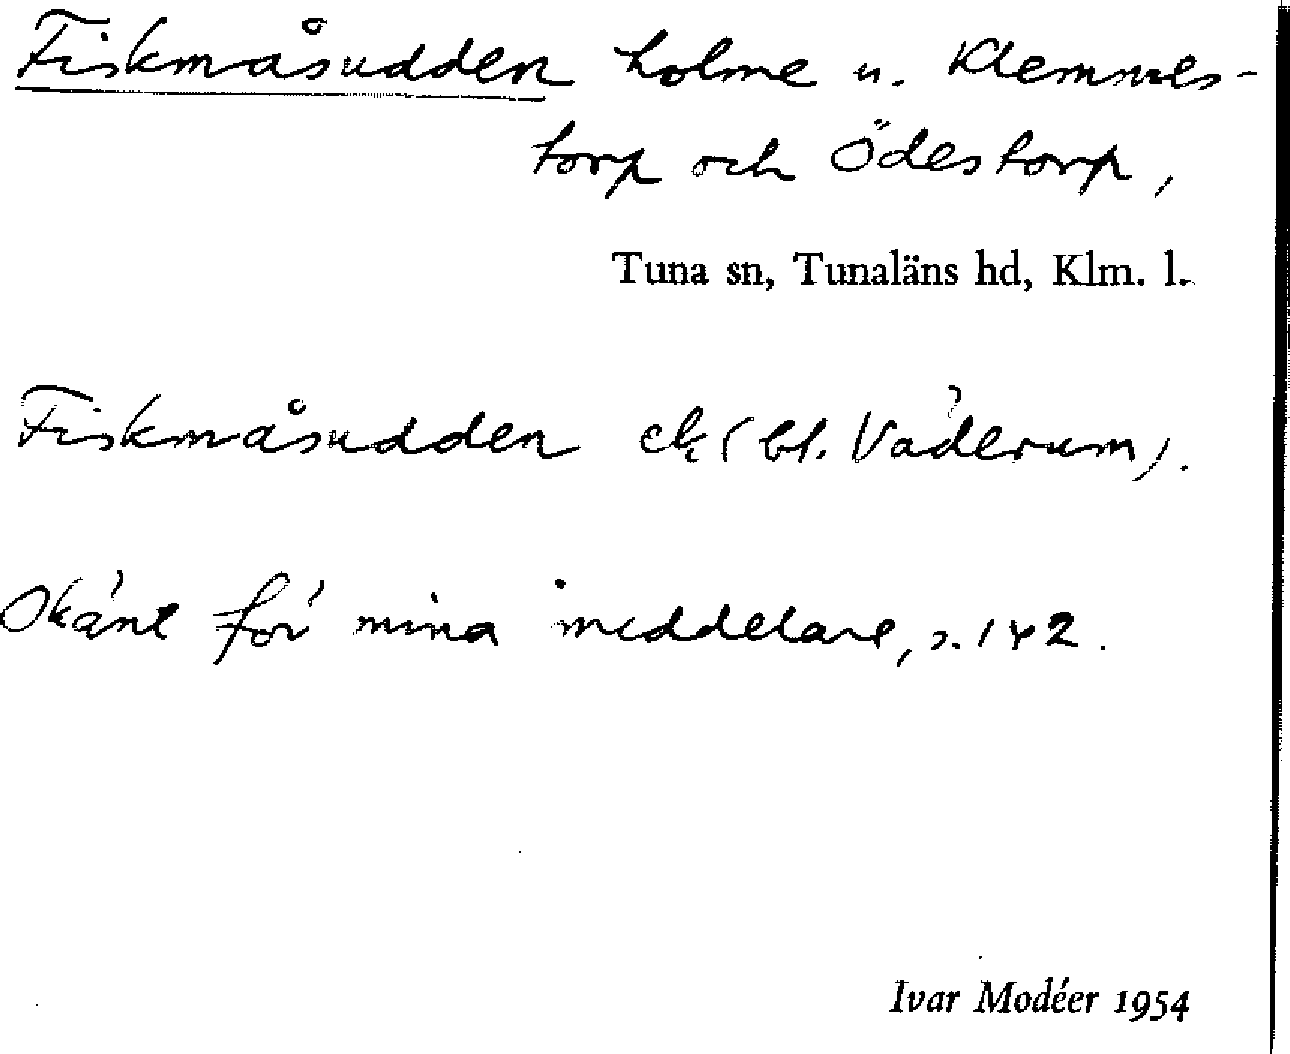 Fiskmåsudden holme u. Klemmes-
torp och Ödestorp,
Tuna sn, Tunaläns hd, Klm. l.
Fiskmåsudden ek (bl. Väderum).
Okänt för mina meddelare, s. 142.
Ivar Modéer 1954